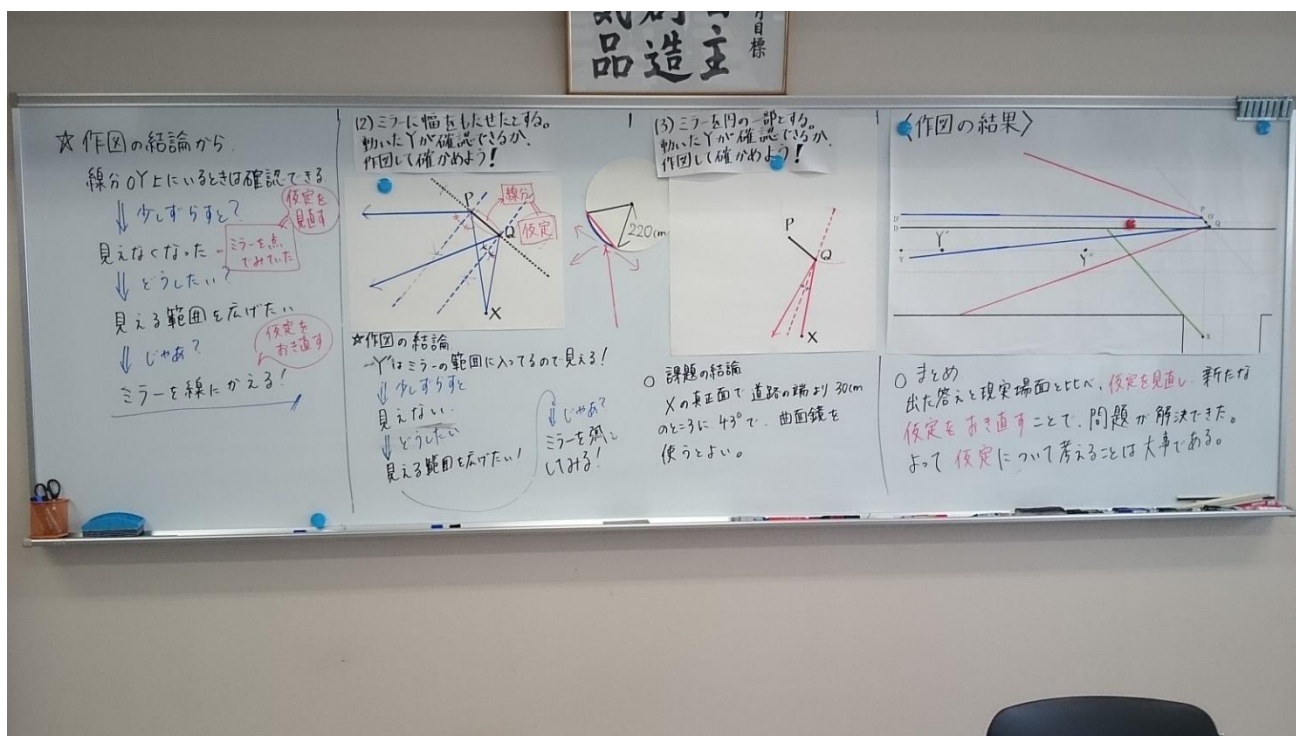 月目標
自主
創造
気品
☆作図の結論から
線分OY上にいるときは確認できる
⇓少しずらすと?
仮定を
見直す
見えなくなった
ミラーを点
でみていた
⇓どうしたい?
見える範囲を広げたい
⇓じゃあ?
仮定を
おき直す
ミラーを線にかえる!
(2)ミラーに幅をもたせたとする。
動いたYが確認できるか、
作図して確かめよう!
P
線分
仮定
Q
X
220cm
☆作図の結論
Y'はミラーの範囲に入ってるので見える!
⇓少しずらすと
見えない
⇓どうしたい
見える範囲を広げたい!
⇓じゃあ?
ミラーを弧に
してみる!
(3)ミラーを円の一部とする。
動いたYが確認できるか、
作図して確かめよう!
P
Q
X
○課題の結論
Xの真正面で道路の端より30cm
のところに43°で、曲面鏡を
使うとよい。
〈作図の結果〉
P
Q
D'
D
Y
Y'
Y''
X
○まとめ
出た答えと現実場面と比べ、仮定を見直し、新たな
仮定をおき直すことで、問題が解決できた。
よって仮定について考えることは大事である。